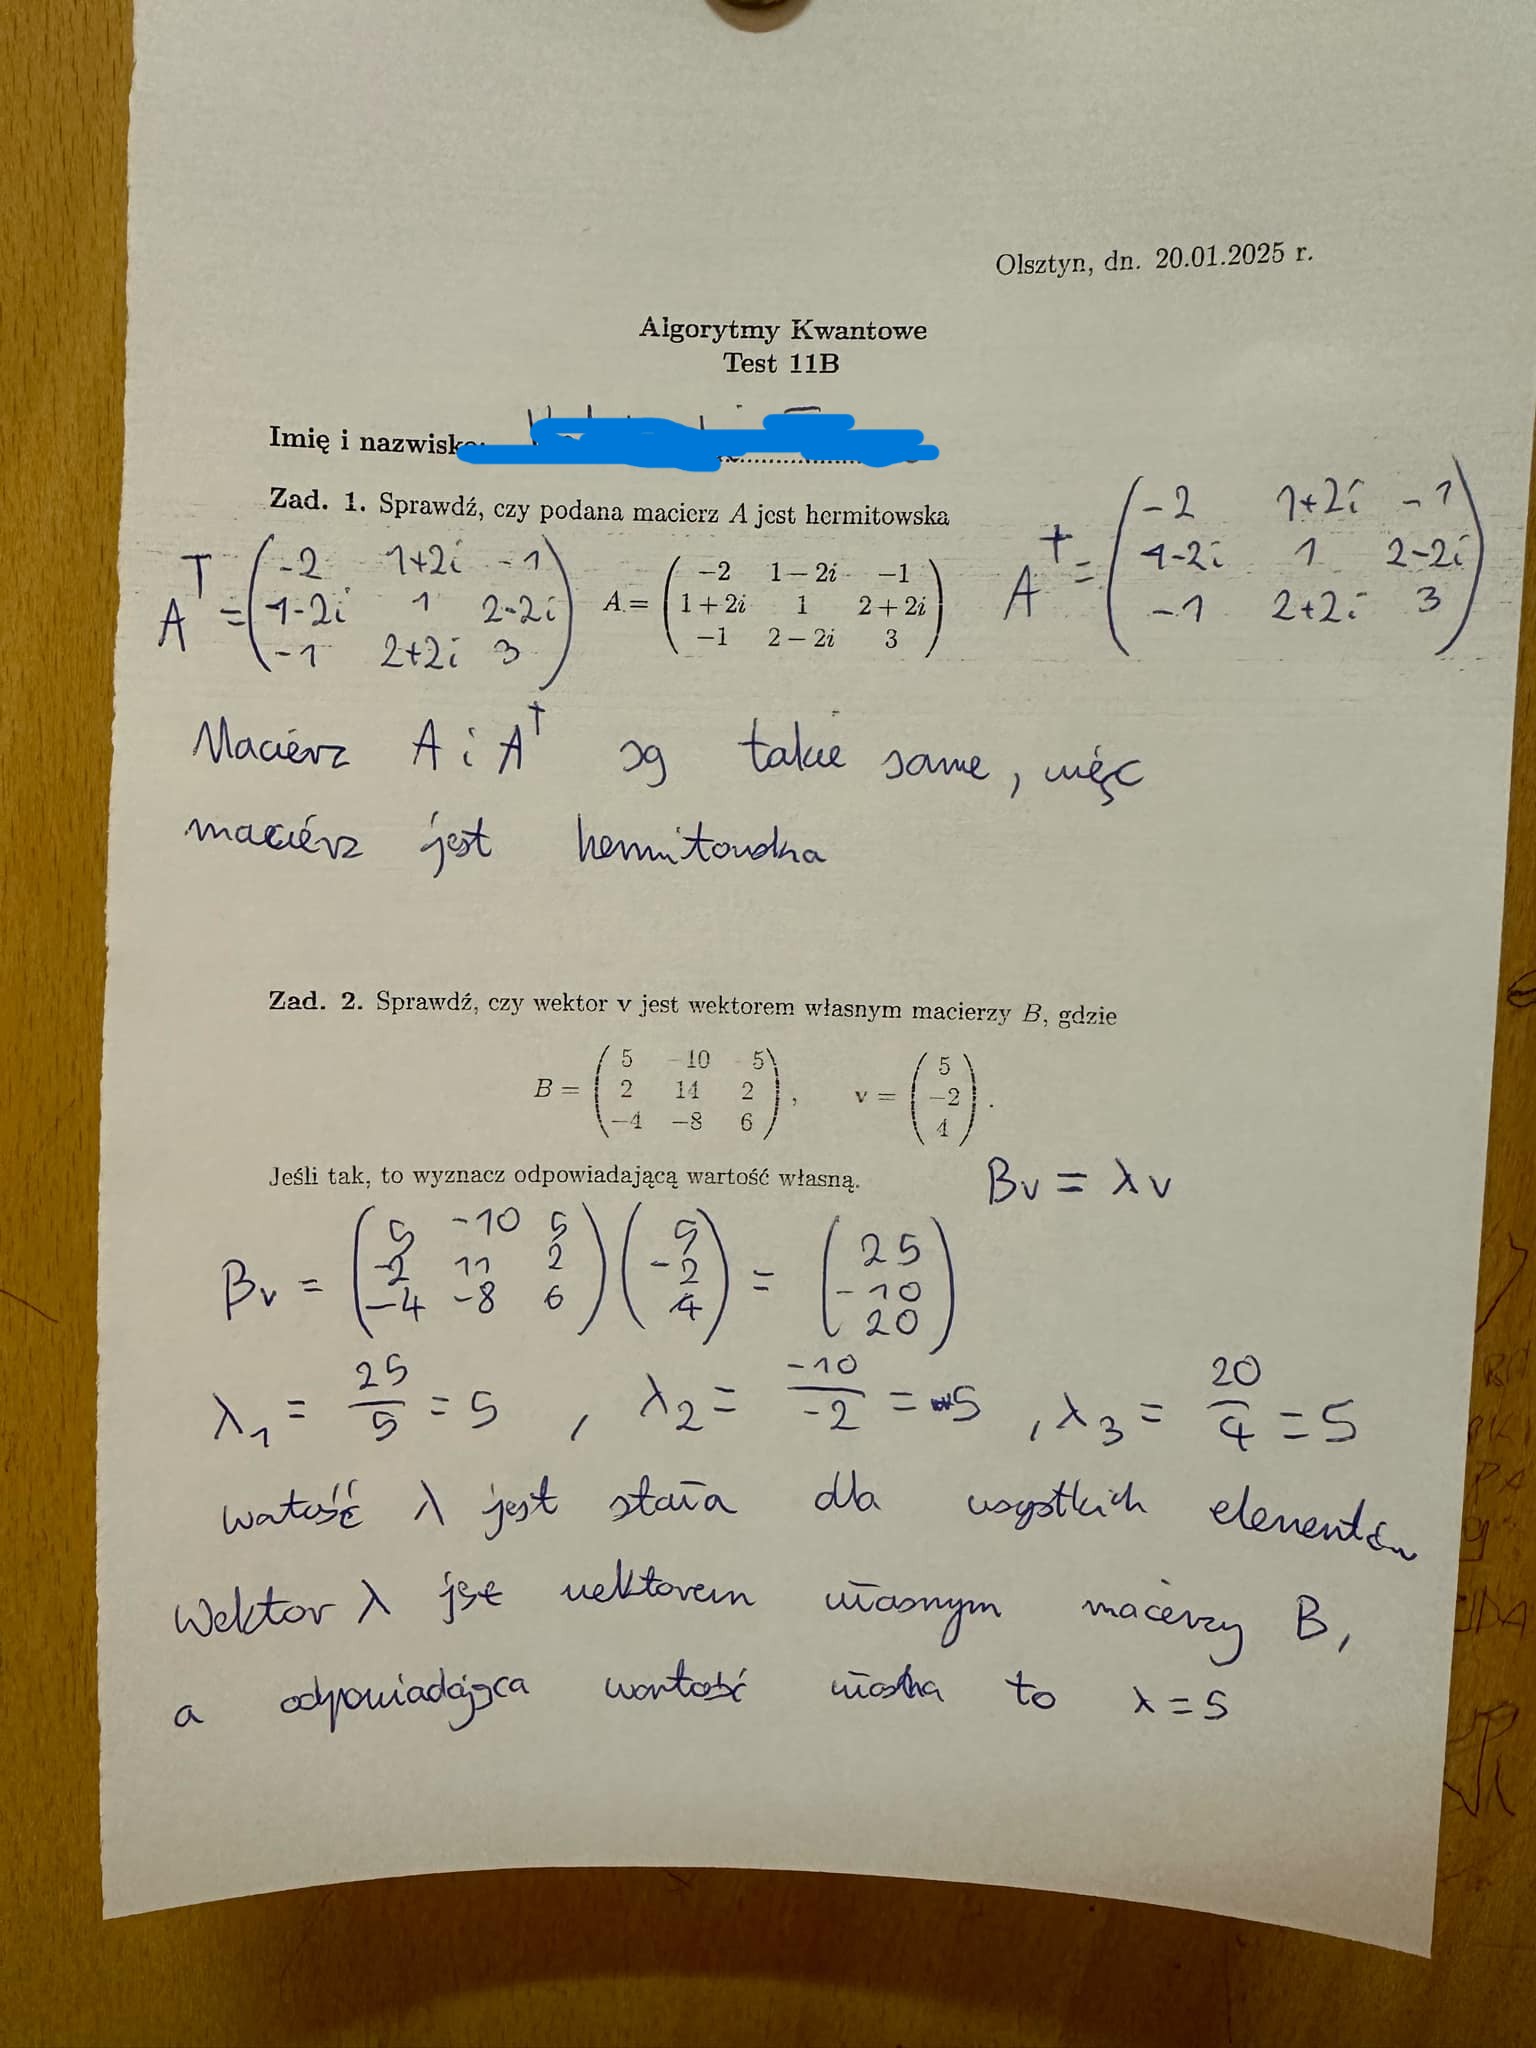 Olsztyn, dn. 20.01.2025 r.
Algorytmy Kwantowe
Test 11B
Imię i nazwisko:
Zad. 1. Sprawdź, czy podana macierz A jest hermitowska
A^T = (-2 1+2i -1
1-2i 1 2-2i
-1 2+2i 3)
A = (-2 1-2i -1
1+2i 1 2+2i
-1 2-2i 3)
A^† = (-2 1+2i -1
1-2i 1 2-2i
-1 2+2i 3)
Macierz A i A^† są takie same, więc
macierz jest hermitowska
Zad. 2. Sprawdź, czy wektor v jest wektorem własnym macierzy B, gdzie
B = (5 -10 -5
2 14 2
-4 -8 6), v = (5
-2
4).
Jeśli tak, to wyznacz odpowiadającą wartość własną.
Bv = λv
Bv = (5 -10 5
-2 11 2
-4 -8 6) (5
-2
4) = (25
-10
20)
λ1 = 25/5 = 5 , λ2 = -10/-2 = 5 , λ3 = 20/4 = 5
watość λ jest stała dla wszystkich elementów
Wektor λ jest wektorem własnym macierzy B,
a odpowiadająca wartość własna to λ = 5